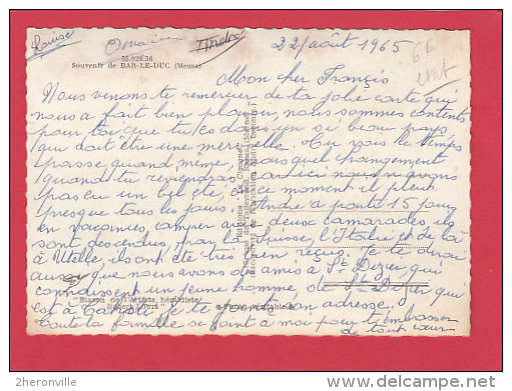 Louise
André
22/août 1965
55.029.56
Souvenir de BAR-LE-DUC (Meuse)
Mon cher François
Nous venons te remercier de ta jolie carte qui
nous a fait bien plaisir, nous sommes contents
pour toi que tu es dans un si beau pays
qui doit être une merveille. Tu vois le temps
passe quand même,
quand tu reviendras ici nous n'avons
pas eu un bel été, en ce moment il pleut
presque tous les jours. André a passé 15 jours
en vacances camper avec deux camarades, ils
sont descendus par la Suisse, l'Italie et de là
à Utelle, ils ont été très bien reçus. Je te dirai
aussi que nous avons des amis à St Dizier qui
connaissent un jeune homme de St Dizier qui
"Blason de l'artiste héraldiste
Robert Louis"
est à je te son adresse.
Toute la famille se joint à moi pour t'embrasser
de tout cœur
© zheronville
available on http://www.delcampe.net